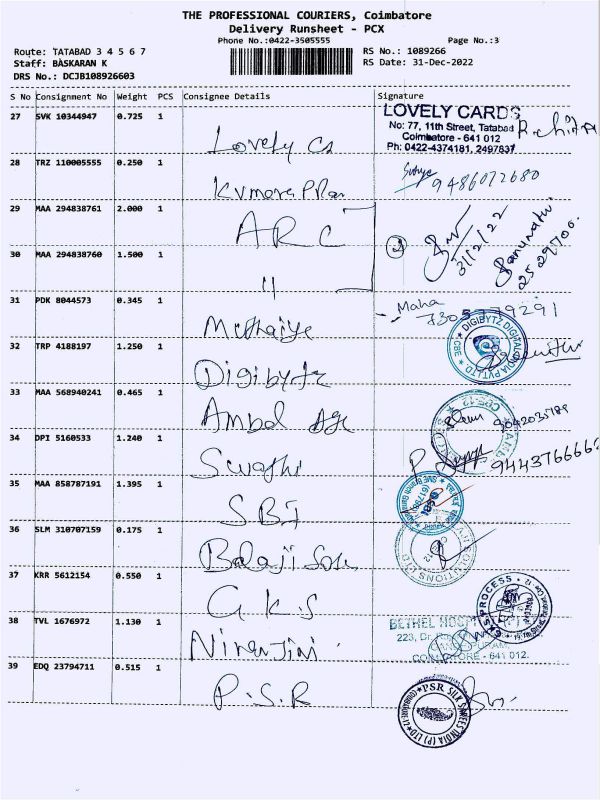 THE PROFESSIONAL COURIERS, Coimbatore
Delivery Runsheet - PCX
Phone No.:0422-3505555
Page No.:3
Route: TATABAD 3 4 5 6 7
RS No.: 1089266
Staff: BASKARAN K
RS Date: 31-Dec-2022
DRS No.: DCJB108926603
S No Consignment No Weight PCS Consignee Details Signature
27 SVK 10344947 0.725 1
LOVELY CARDS
No: 77, 11th Street, Tatabad
Coimbatore - 641 012
Ph: 0422-4374181, 2497837
Lovely Cs
28 TRZ 110005555 0.250 1
9486072680
29 MAA 294838761 2.000 1
ARC
31/12/22
30 MAA 294838760 1.500 1
"
31 PDK 8044573 0.345 1
Maha
32 TRP 4188197 1.250 1
Digibytz
DIGIBYTZ DIGITAL INDIA PVT LTD
CBE
33 MAA 568940241 0.465 1
Ambal
9042035789
34 DPI 5160533 1.240 1
Swathi
35 MAA 858787191 1.395 1
SBI
36 SLM 310707159 0.175 1
Balaji
37 KRR 5612154 0.550 1
G.K.S
GKS PROCESS
38 TVL 1676972 1.130 1
Niranjini
BETHEL
223, Dr.
COIMBATORE - 641 012.
39 EDQ 23794711 0.515 1
P.S.R
PSR SILK SAREES INDIA (P) LTD